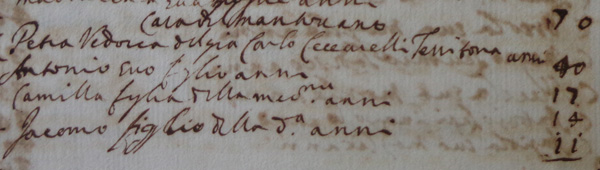 sua anni
Casa di Mantovano 70
Petra Vedova del già Carlo Ceccarelli Tessitora anni 40
Antonio suo figlio anni 17
Camilla figlia della med.ma anni 14
Jacomo figlio della d.a anni 11